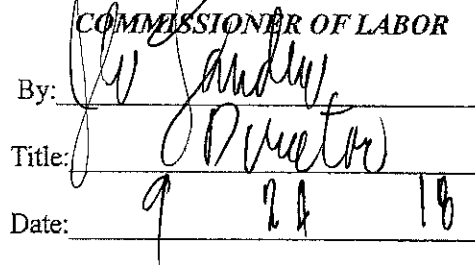 COMMISSIONER OF LABOR
By:
Title: Director
Date: 9 24 18